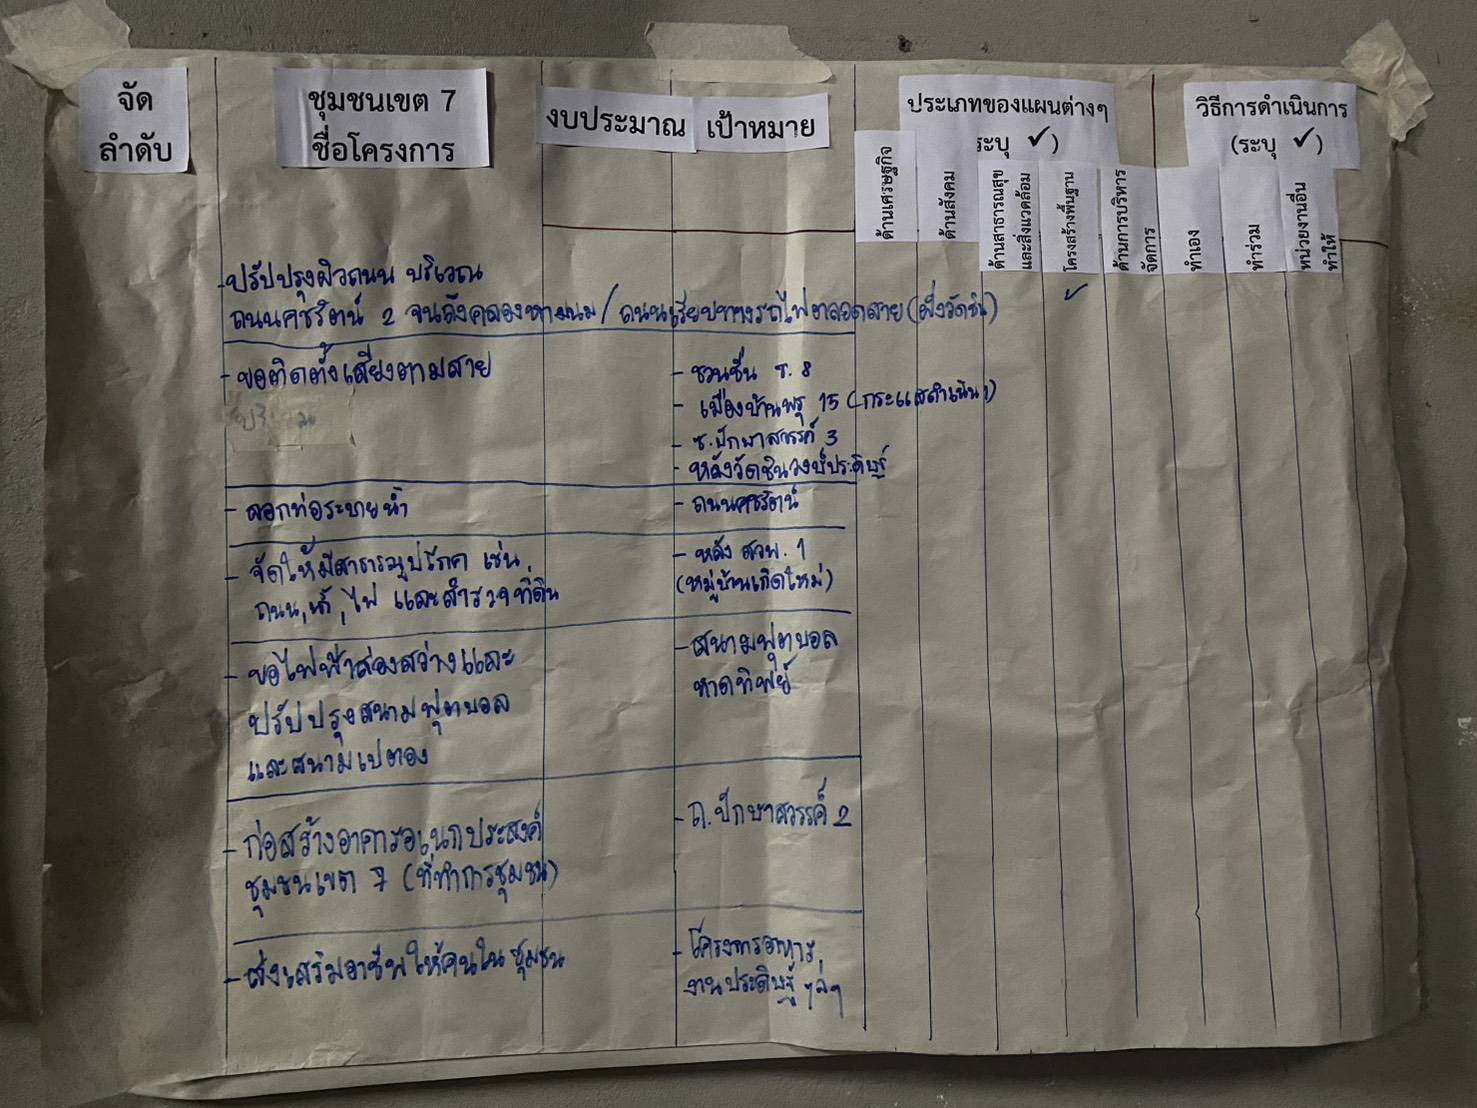 จัด
ลำดับ
ชุมชนเขต 7
ชื่อโครงการ
งบประมาณ
เป้าหมาย
ประเภทของแผนต่างๆ
(ระบุ ✓)
ด้านเศรษฐกิจ
ด้านสังคม
ด้านสาธารณสุข
และสิ่งแวดล้อม
โครงสร้างพื้นฐาน
ด้านการบริหาร
จัดการ
วิธีการดำเนินการ
(ระบุ ✓)
ทำเอง
ทำร่วม
หน่วยงานอื่น
ทำให้
- ปรับปรุงผิวถนน บริเวณ
ถนนคชรัตน์ 2 จนถึงคลอง / ถนนเรียบทางรถไฟตลอดสาย (ฝั่งวัดชิน) ✓
- ขอติดตั้งเสียงตามสาย
- ชวนชื่น ซ. 8
- เมืองบ้านพรุ 15 (กระแสดำเนิน 1)
- ซ.ปักษาสวรรค์ 3
- หลังวัดชินวงษ์ประดิษฐ์
- ลอกท่อระบายน้ำ
- ถนนคชรัตน์
- จัดให้มีสาธารณูปโภค เช่น
ถนน, น้ำ, ไฟ และสำรวจที่ดิน
- หลัง สวพ. 1
(หมู่บ้านเกิดใหม่)
- ขอไฟฟ้าส่องสว่างและ
ปรับปรุงสนามฟุตบอล
และสนามเปตอง
- สนามฟุตบอล
หาดทิพย์
- ก่อสร้างอาคารอเนกประสงค์
ชุมชนเขต 7 (ที่ทำการชุมชน)
- ถ.ปักษาสวรรค์ 2
- ส่งเสริมอาชีพให้คนในชุมชน
- โครงการอาหาร,
งานประดิษฐ์ ฯลฯ